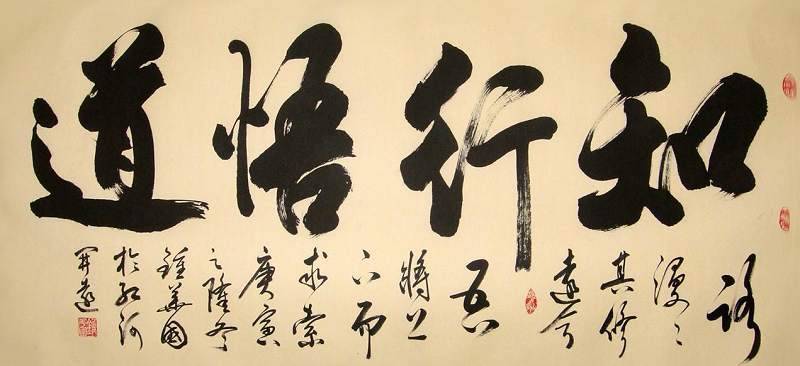 知行悟道
路
漫〻
其修
遠兮
吾
將上
下而
求索
庚寅
之隆冬
鍾華國
於红河
開遠